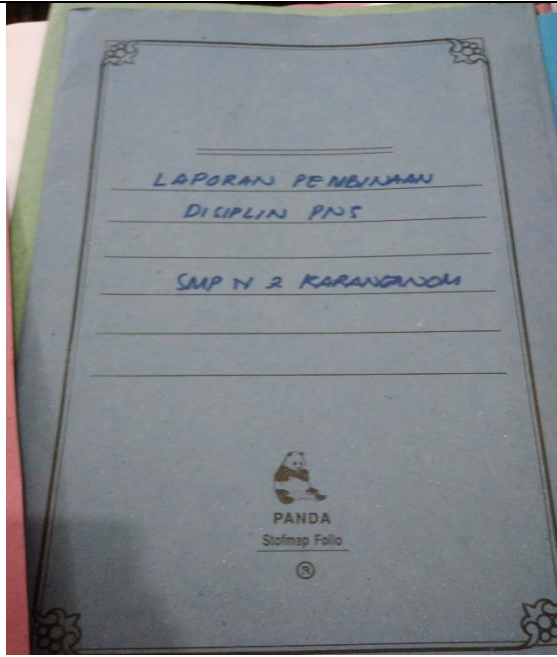 LAPORAN PEMBINAAN
DISIPLIN PNS
SMP N 2 KARANGANOM
PANDA
Stofmap Folio
®